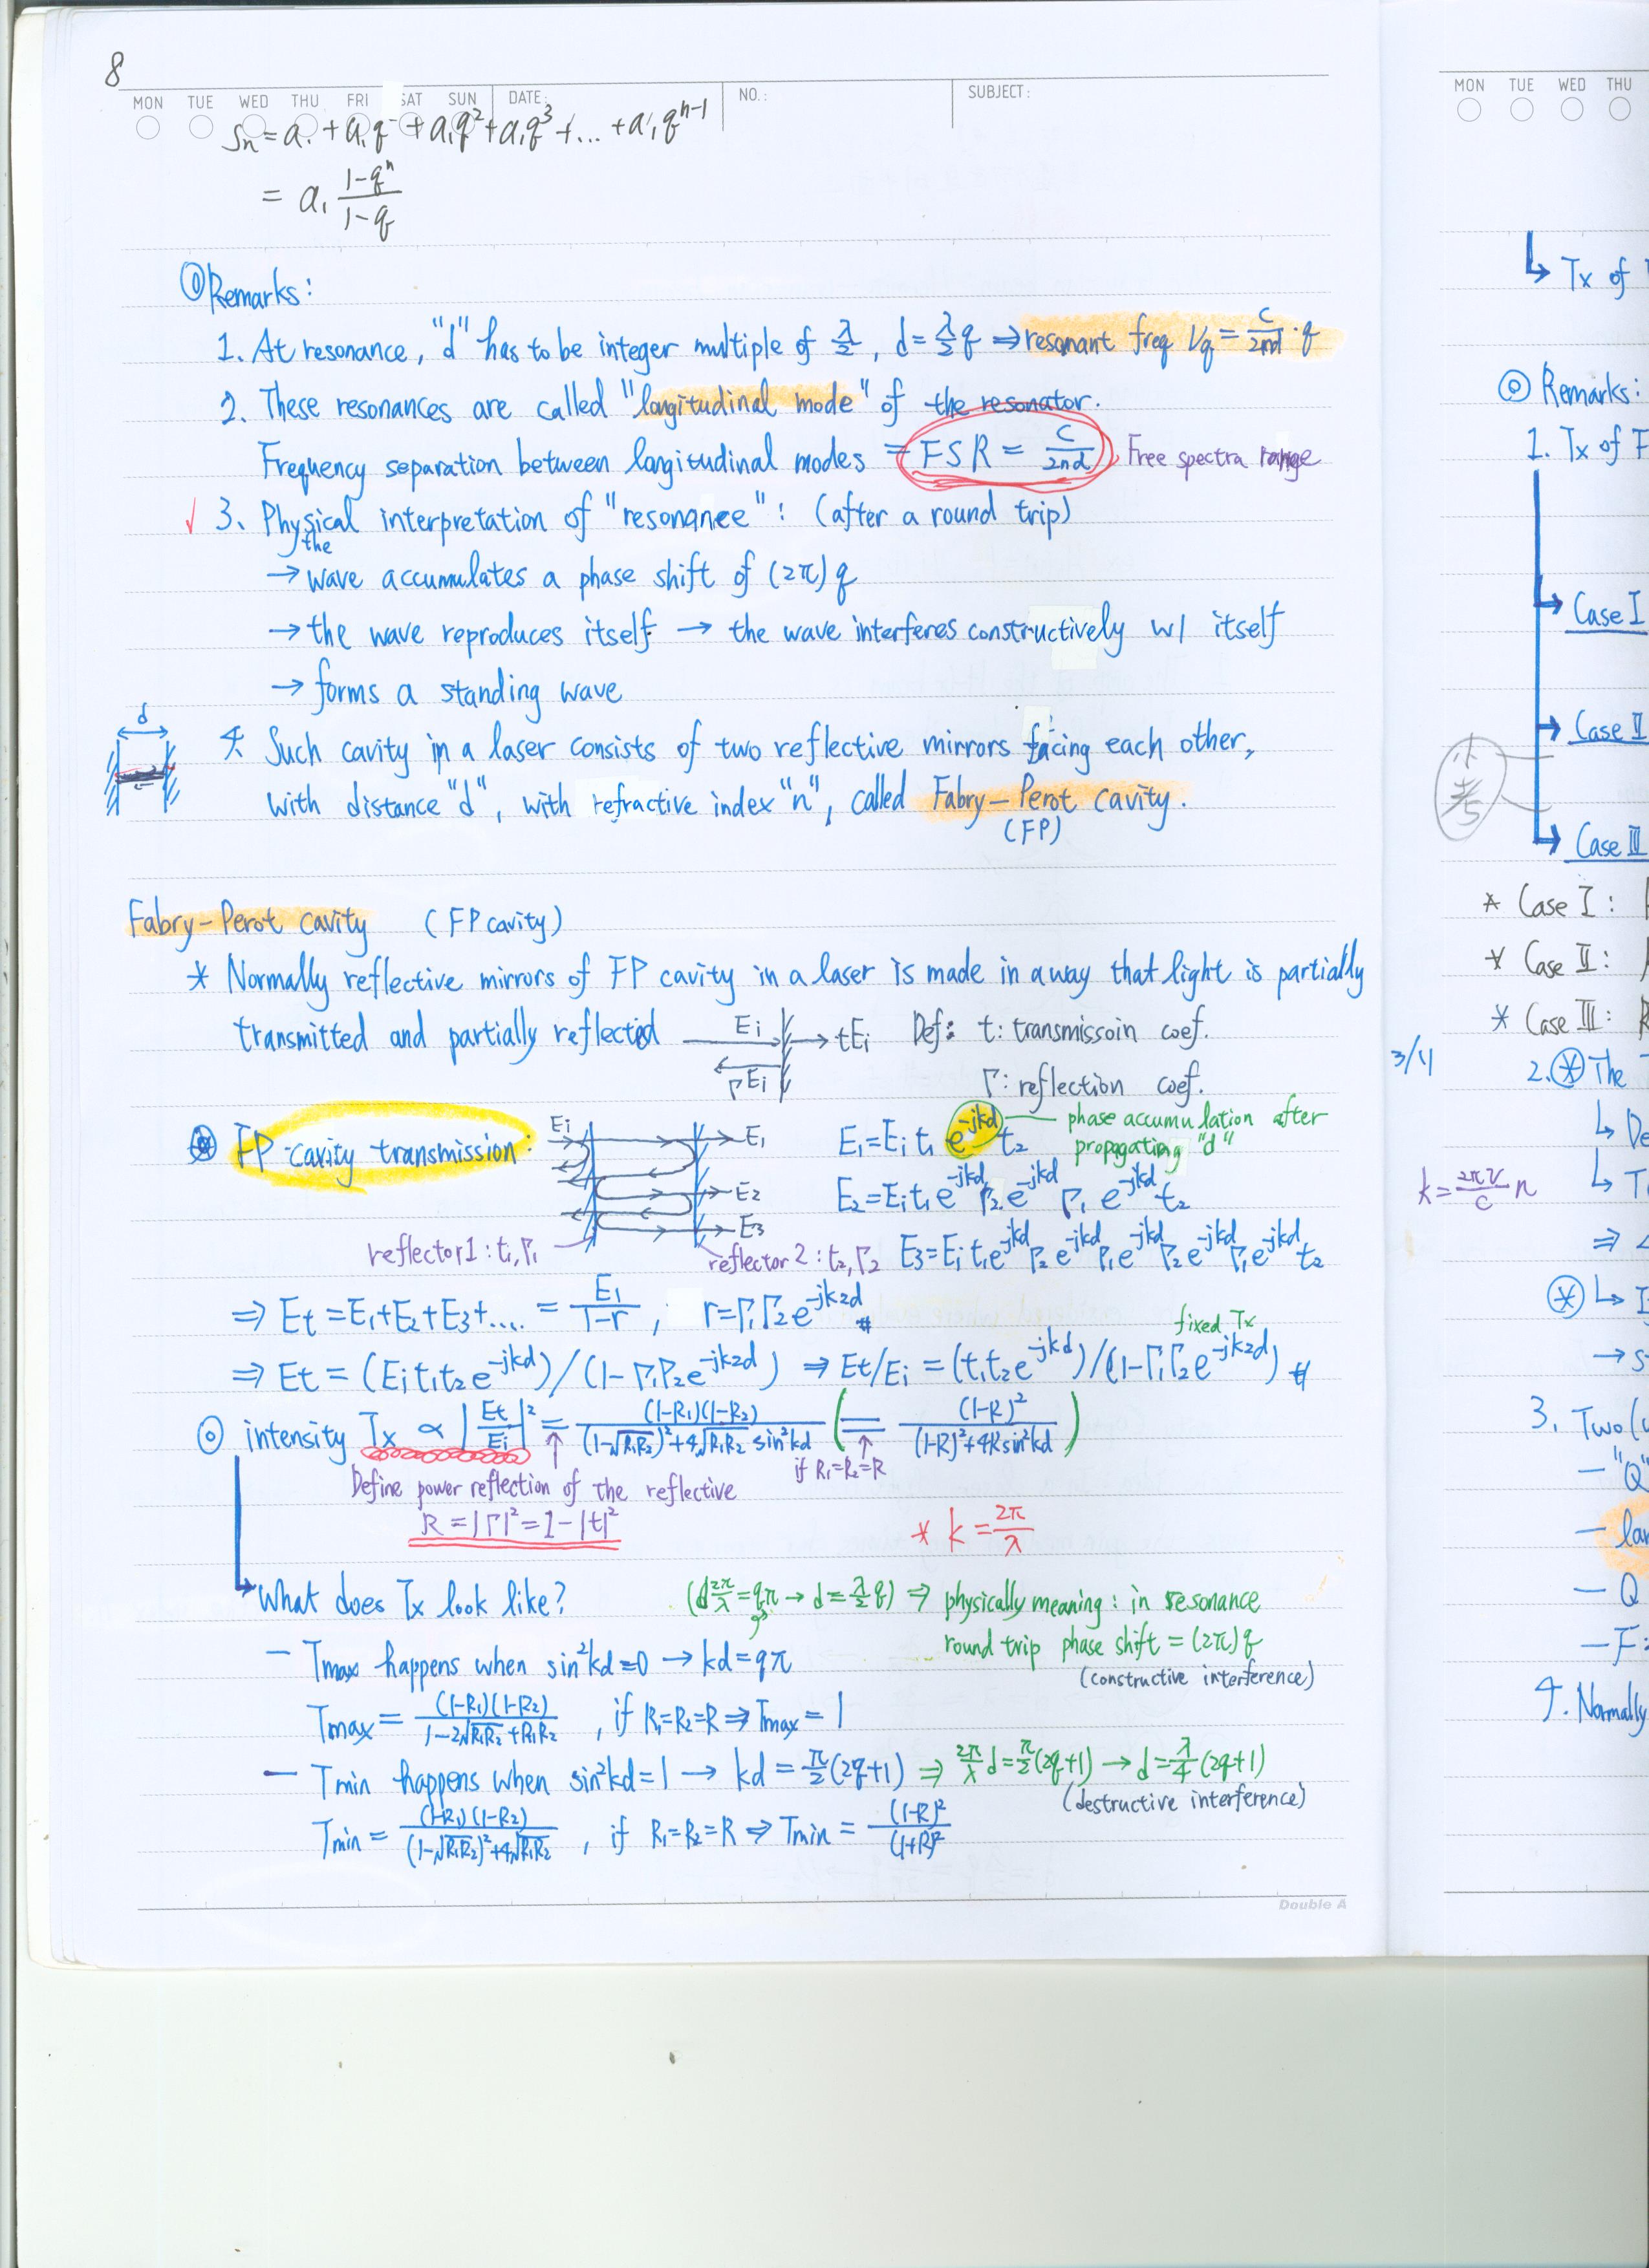 8
MON TUE WED THU FRI SAT SUN DATE: NO.: SUBJECT:
Sn = a₁ + a₁q + a₁q² + a₁q³ + ... + a₁qⁿ⁻¹
= a₁ (1-qⁿ)/(1-q)
◎Remarks:
1. At resonance, "d" has to be integer multiple of λ/2, d = λ/2 q ⇒ resonant freq νq = c/2nd · q
2. These resonances are called "longitudinal mode" of the resonator.
Frequency separation between longitudinal modes = FSR = c/2nd, Free spectra range
✓ 3. Physical interpretation of "resonance": (after a round trip)
the
→ wave accumulates a phase shift of (2π) q
→ the wave reproduces itself → the wave interferes constructively w/ itself
→ forms a standing wave
d
4. Such cavity in a laser consists of two reflective mirrors facing each other,
with distance "d", with refractive index "n", called Fabry-Perot cavity.
(FP)
Fabry-Perot cavity (FP cavity)
* Normally reflective mirrors of FP cavity in a laser is made in a way that light is partially
transmitted and partially reflected Ei → tEi Def: t: transmissoin coef.
ΓEi Γ: reflection coef.
⊛ FP-cavity transmission: Ei E₁ E₁ = Ei t₁ e^-jkd t₂ phase accumulation after
propagating "d"
E₂ E₂ = Ei t₁ e^-jkd Γ₂ e^-jkd Γ₁ e^-jkd t₂
E₃
reflector 1 : t₁, Γ₁ reflector 2 : t₂, Γ₂ E₃ = Ei t₁ e^-jkd Γ₂ e^-jkd Γ₁ e^-jkd Γ₂ e^-jkd Γ₁ e^-jkd t₂
⇒ Et = E₁+E₂+E₃+..... = E₁/(1-r), r = Γ₁Γ₂e^-jk2d #
fixed Tx
⇒ Et = (Ei t₁t₂e^-jkd)/(1-Γ₁Γ₂e^-jk2d) ⇒ Et/Ei = (t₁t₂e^-jkd)/(1-Γ₁Γ₂e^-jk2d) #
◎ intensity Tx ∝ |Et/Ei|² = (1-R₁)(1-R₂)/((1-√R₁R₂)²+4√R₁R₂ sin²kd) ( = (1-R)²/((1-R)²+4R sin²kd) )
if R₁=R₂=R
Define power reflection of the reflective
R = |Γ|² = 1-|t|²
* k = 2π/λ
What does Tx look like? (d 2π/λ = qπ → d = λ/2 q) ⇒ physically meaning : in resonance
round trip phase shift = (2π) q
- Tmax happens when sin²kd=0 → kd = qπ
(constructive interference)
Tmax = (1-R₁)(1-R₂)/(1-2√R₁R₂+R₁R₂), if R₁=R₂=R ⇒ Tmax = 1
- Tmin happens when sin²kd=1 → kd = π/2 (2q+1) ⇒ 2π/λ d = π/2 (2q+1) → d = λ/4 (2q+1)
(destructive interference)
Tmin = (1-R₁)(1-R₂)/((1-√R₁R₂)²+4√R₁R₂), if R₁=R₂=R ⇒ Tmin = (1-R)²/(1+R)²
Double A
MON TUE WED THU
↳ Tx of
◎ Remarks:
1. Tx of F
Case I
Case II
小考
Case III
* Case I :
* Case II :
* Case III :
3/4
2. ⊛ The
↳ De
k = 2πν/c n
⇒
⊛ ↳
→ s
3. Two
- "Q"
- lar
- Q
- F:
4. Normally